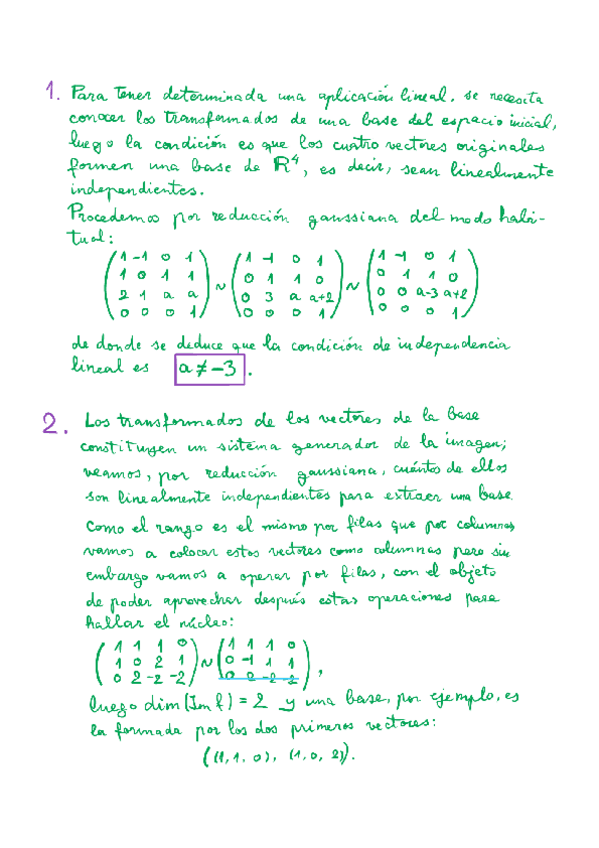 1. Para tener determinada una aplicación lineal, se necesita
conocer los transformados de una base del espacio inicial,
luego la condición es que los cuatro vectores originales
formen una base de R⁴, es decir, sean linealmente
independientes.
Procedemos por reducción gaussiana del modo habi-
tual:
(1 -1 0 1) (1 -1 0 1) (1 -1 0 1)
(1 0 1 1) (0 1 1 0) (0 1 1 0)
(2 1 a a) ~ (0 3 a a+2) ~ (0 0 a-3 a+2)
(0 0 0 1) (0 0 0 1) (0 0 0 1)
de donde se deduce que la condición de independencia
lineal es a ≠ -3.
2. Los transformados de los vectores de la base
constituyen un sistema generador de la imagen;
veamos, por reducción gaussiana, cuántos de ellos
son linealmente independientes para extraer una base
Como el rango es el mismo por filas que por columnas
vamos a colocar estos vectores como columnas pero sin
embargo vamos a operar por filas, con el objeto
de poder aprovechar después estas operaciones para
hallar el núcleo:
(1 1 1 0) (1 1 1 0)
(1 0 2 1) ~ (0 -1 1 1)
(0 2 -2 -2) (0 2 -2 -2),
luego dim(Im f) = 2 y una base, por ejemplo, es
la formada por los dos primeros vectores:
((1, 1, 0), (1, 0, 2)).